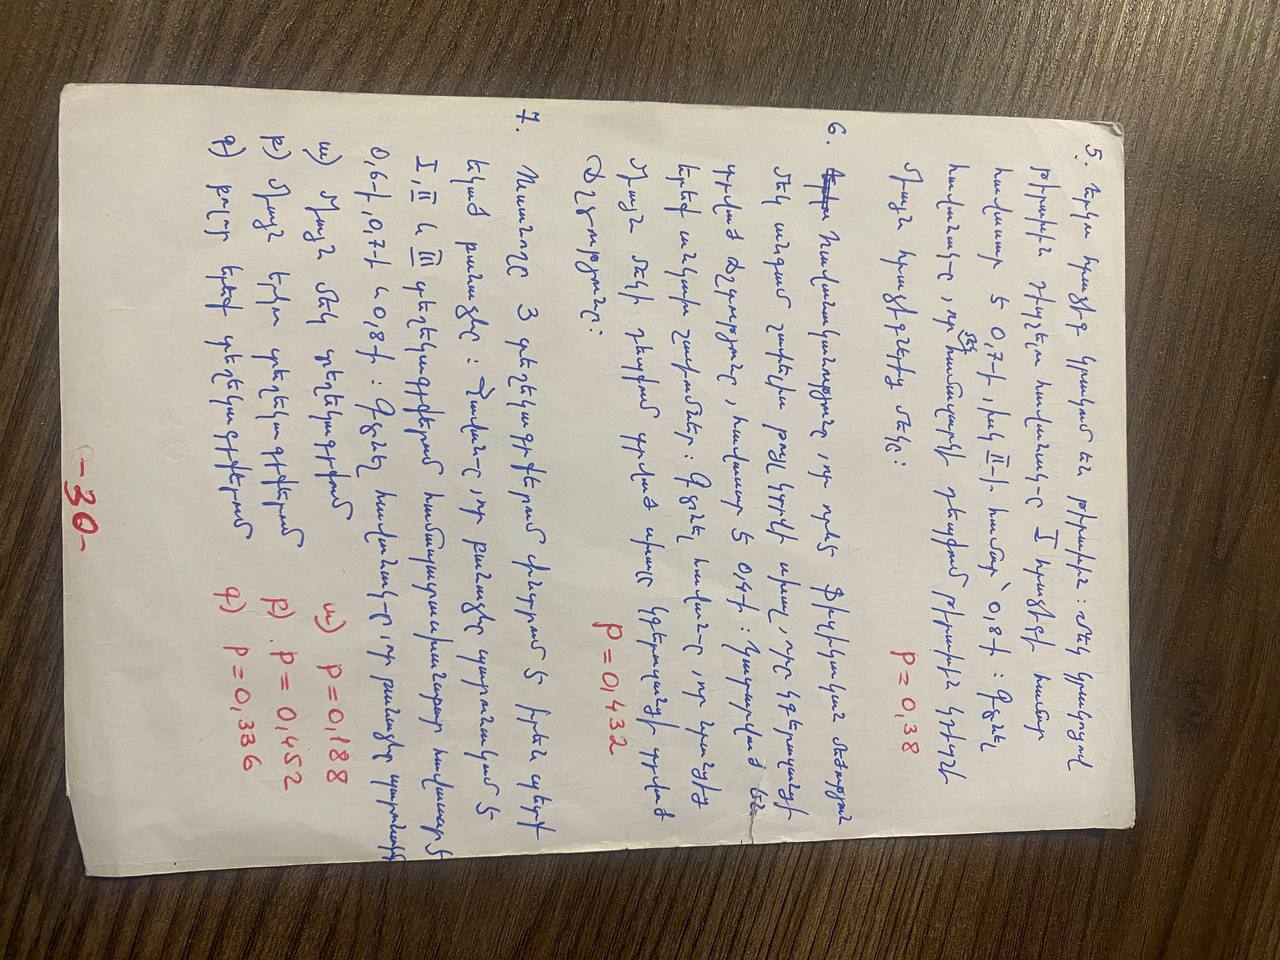 5. Երկու հրաձիգ կրակում են թիրախին: Մեկ կրակոցով
թիրախին դիպչելու հավանակ-ը I հրաձիգի համար
հավասար է 0,7-ի, իսկ II-ի համար՝ 0,8-ի: Գտնել
հավանակ-ը, որ մեկ համազարկի դեպքում թիրախին կդիպչի
միայն հրաձիգներից մեկը:
P = 0,38
6. Հավանականությունը, որ որևէ ֆիզիկական մեծություն
մեկ անգամ չափելիս թույլ կտրվի սխալ, որը կգերազանցի
տրված ճշտությունը, հավասար է 0,4-ի: Կատարված են
երեք անկախ չափումներ: Գտնել հավան-ը, որ նրանցից
միայն մեկի դեպքում տրված սխալը կգերազանցի տրված
ճշտությունը:
P = 0,432
7. Ուսանողը 3 տեղեկագրքերում փնտրում է իրեն պետք
եկած բանաձևը: Հավան-ը, որ բանաձևը պարունակում է
I, II և III տեղեկագրքերում համապատասխանաբար հավասար է
0,6-ի, 0,7-ի և 0,8-ի: Գտնել հավանակ-ը, որ բանաձևը պարունակվում
ա) միայն մեկ տեղեկագրքում
ա) P = 0,188
բ) միայն երկու տեղեկագրքերում
բ) P = 0,452
գ) բոլոր երեք տեղեկագրքերում
գ) P = 0,336
-30-